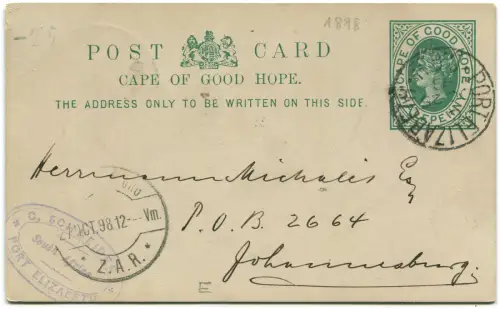 1898
POST CARD
CAPE OF GOOD HOPE.
THE ADDRESS ONLY TO BE WRITTEN ON THIS SIDE.
CAPE OF GOOD HOPE
PORT ELIZABETH
Herrmann Michalis Esq
P.O.B. 2664
Johannesburg.
OCT.98.12---Vm.
* Z.A.R. *
PORT ELIZABETH
E